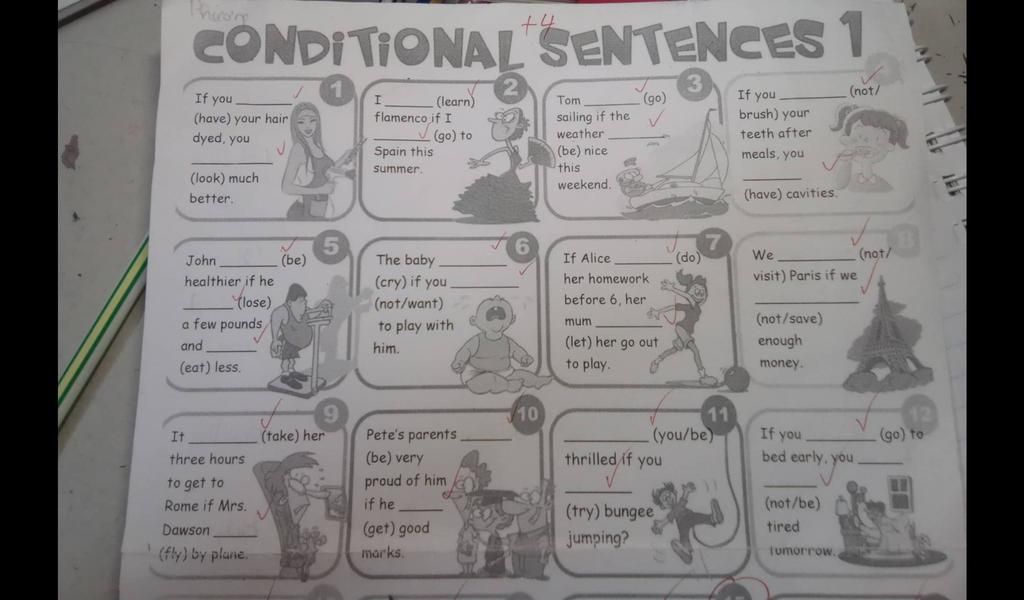 Phirom
+4
CONDITIONAL SENTENCES 1
1
If you ________
(have) your hair
dyed, you
________
(look) much
better.
2
I ______ (learn)
flamenco if I
________ (go) to
Spain this
summer.
3
Tom ________ (go)
sailing if the
weather ________
(be) nice
this
weekend.
If you ________ (not/
brush) your
teeth after
meals, you
________
(have) cavities.
5
John ________ (be)
healthier if he
______ (lose)
a few pounds
and ______
(eat) less.
6
The baby ________
(cry) if you ________
(not/want)
to play with
him.
7
If Alice ________ (do)
her homework
before 6, her
mum ________
(let) her go out
to play.
8
We ________ (not/
visit) Paris if we
____________
(not/save)
enough
money.
9
It ________ (take) her
three hours
to get to
Rome if Mrs.
Dawson ______
(fly) by plane.
10
Pete's parents ______
(be) very
proud of him
if he ______
(get) good
marks.
11
__________ (you/be)
thrilled if you
________
(try) bungee
jumping?
12
If you ________ (go) to
bed early, you _____
________
(not/be)
tired
tomorrow.